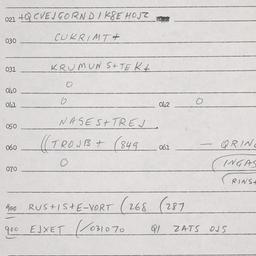 021 +QCVEJGORNDIK8E HOJZ
030 CUKRIMT+
031 KRUMUNS+TEK+
040 0
041 0 042 0
050 NASES+TREJ
060 ((TROJB+ (849 061 — QRIN
070 0 (INGAS
(RINS+
900 RUS+IS+E-VORT (268 (287
900 EJXET (/031070 QI ZATS OJS